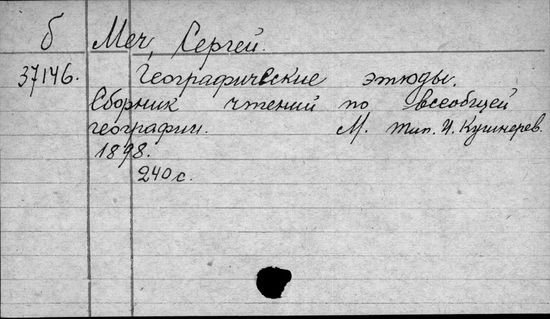 б Меч, Сергей.
37146. Географические этюды.
Сборник чтений по всеобщей
географии. М. тип. И. Кушнерев.
1898.
240 с.